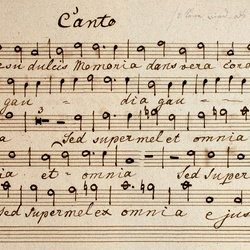 Canto
esu dulcis Memoria dans vera cor
gau dia gau
a Sed super mel et omnia
ia et omnia Sed super
Sed super mel ex omnia ejus